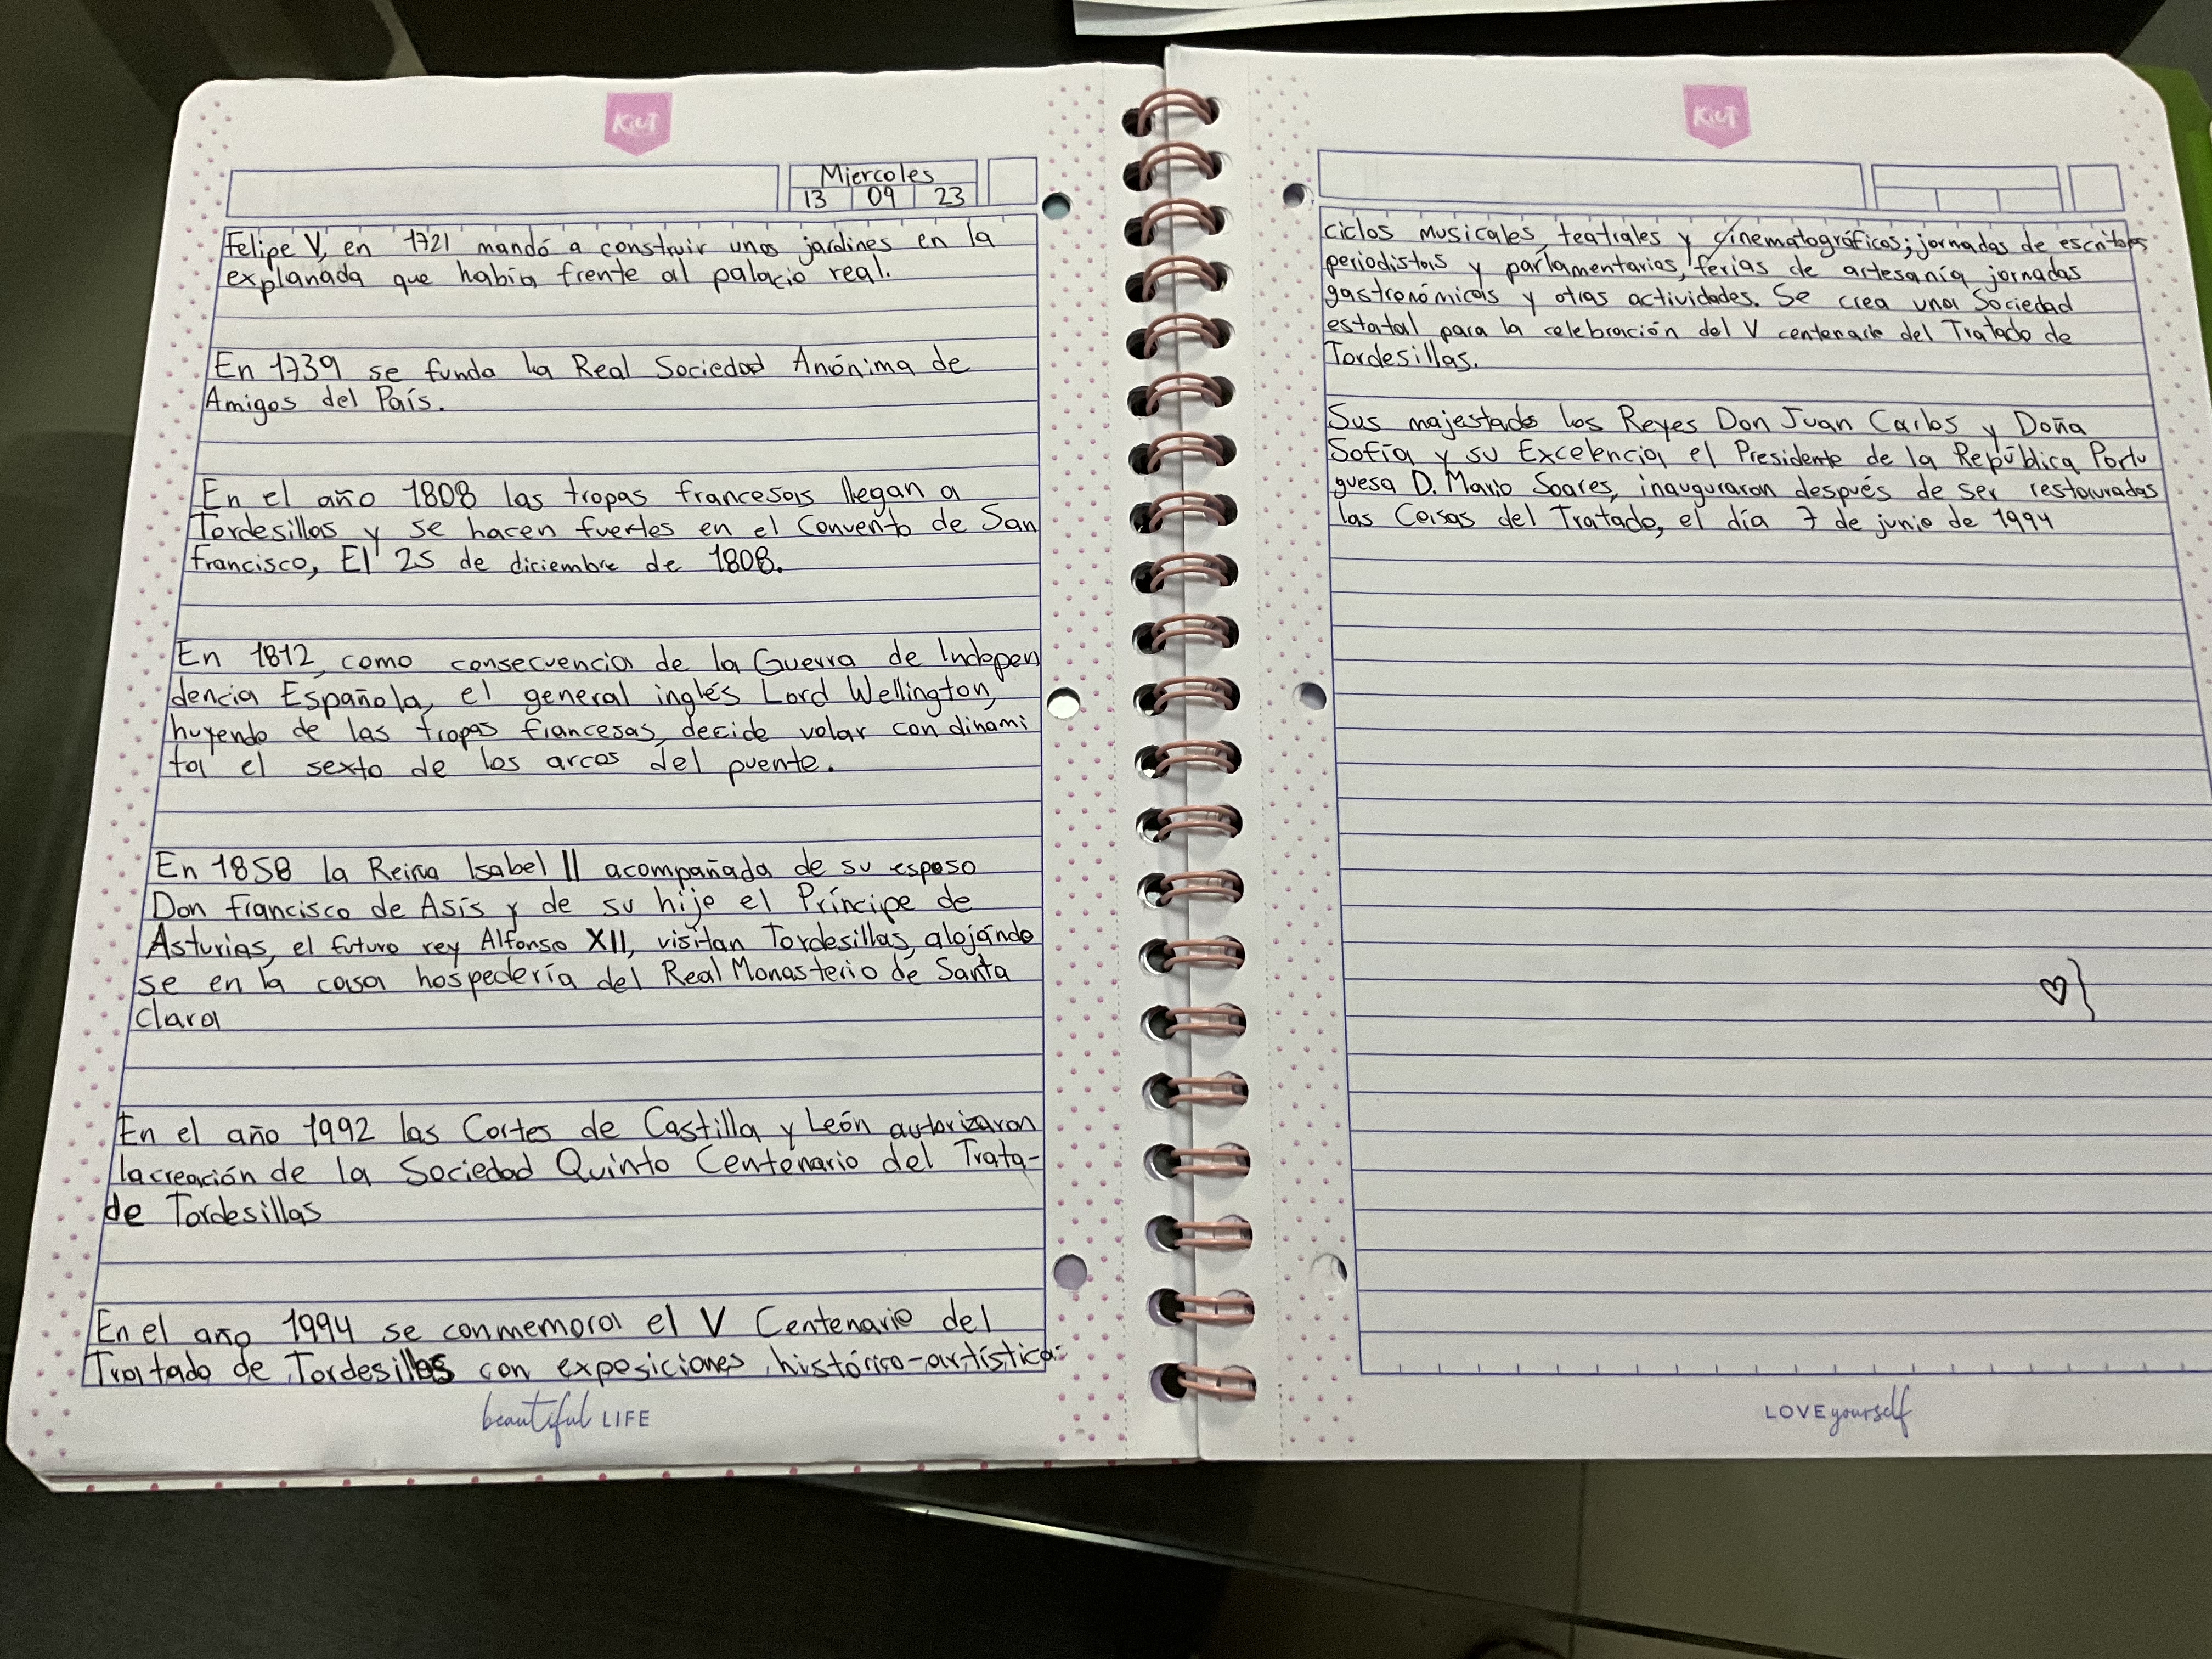 KiUT
Miercoles
13 09 23
Felipe V, en 1721 mandó a construir unos jardines en la
explanada que había frente al palacio real.
En 1739 se funda la Real Sociedad Anónima de
Amigos del País.
En el año 1808 las tropas francesas llegan a
Tordesillas y se hacen fuertes en el Convento de San
Francisco, El 25 de diciembre de 1808.
En 1812, como consecuencia de la Guerra de Indepen
dencia Española, el general inglés Lord Wellington,
huyendo de las tropas francesas, decide volar con dinami
ta el sexto de los arcos del puente.
En 1858 la Reina Isabel II acompañada de su esposo
Don Francisco de Asís y de su hijo el Príncipe de
Asturias, el futuro rey Alfonso XII, visitan Tordesillas, alojándo
se en la casa hospedería del Real Monasterio de Santa
Clara
En el año 1992 las Cortes de Castilla y León autorizaron
la creación de la Sociedad Quinto Centenario del Trata-
de Tordesillas
En el año 1994 se conmemora el V Centenario del
Tratado de Tordesillas con exposiciones histórico-artística:
beautiful LIFE
KiUT
ciclos musicales, teatrales y cinematográficos; jornadas de escritores
periodistas y parlamentarios, ferias de artesanía, jornadas
gastronómicas y otras actividades. Se crea una Sociedad
estatal para la celebración del V centenario del Tratado de
Tordesillas.
Sus majestades los Reyes Don Juan Carlos y Doña
Sofía y su Excelencia el Presidente de la República Portu
guesa D. Mario Soares, inauguraron después de ser restauradas
las Casas del Tratado, el día 7 de junio de 1994
LOVE yourself